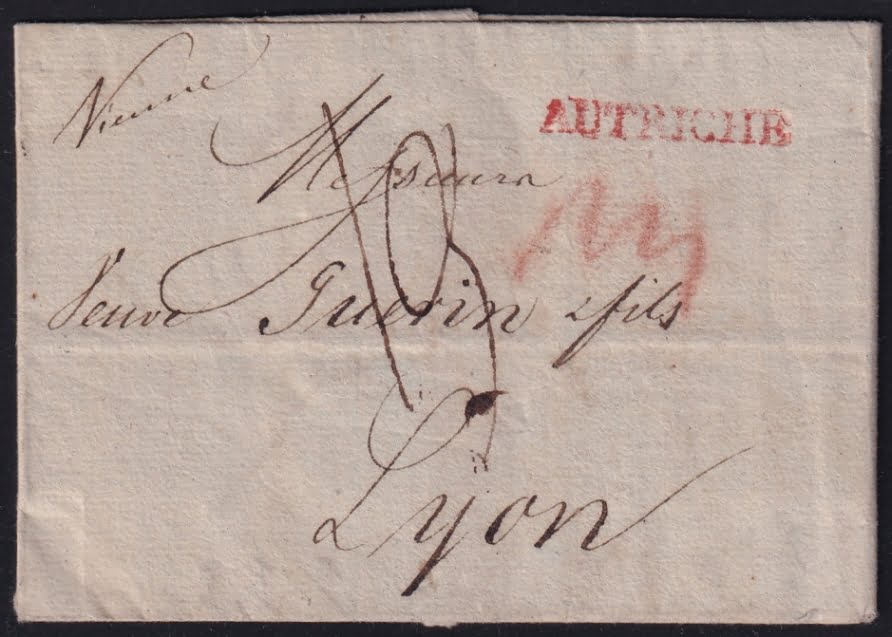 Vienne
AUTRICHE
Messieurs
Veuve Guerin & fils
Lyon